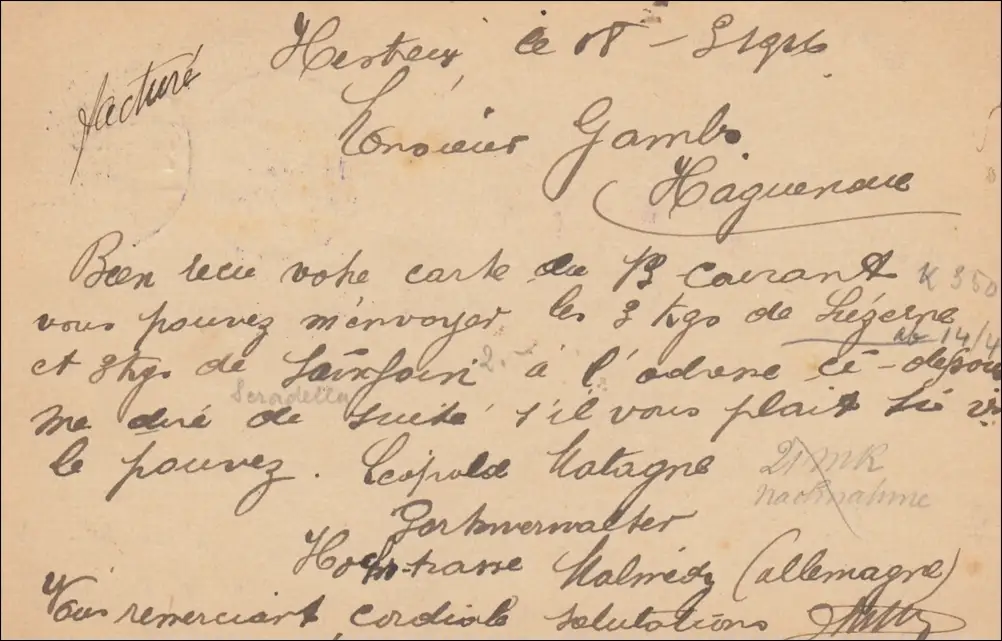 facturé
le 18 - 3
Monsieur Gambs
Haguenau
Bien recu votre carte du 13 courant
K 350
vous pouvez m'envoyer les 3 kgs de Luzerne
ab 14/4
et 3 kgs de Sainfoin à l'adresse ci-
2.-
Seradella
me de suite s'il vous plait si
le pouvez. Léopold Matagne
21 MK
Nachnahme
Hochstrasse Malmédy (allemagne)
Vous remerciant cordiale salutations